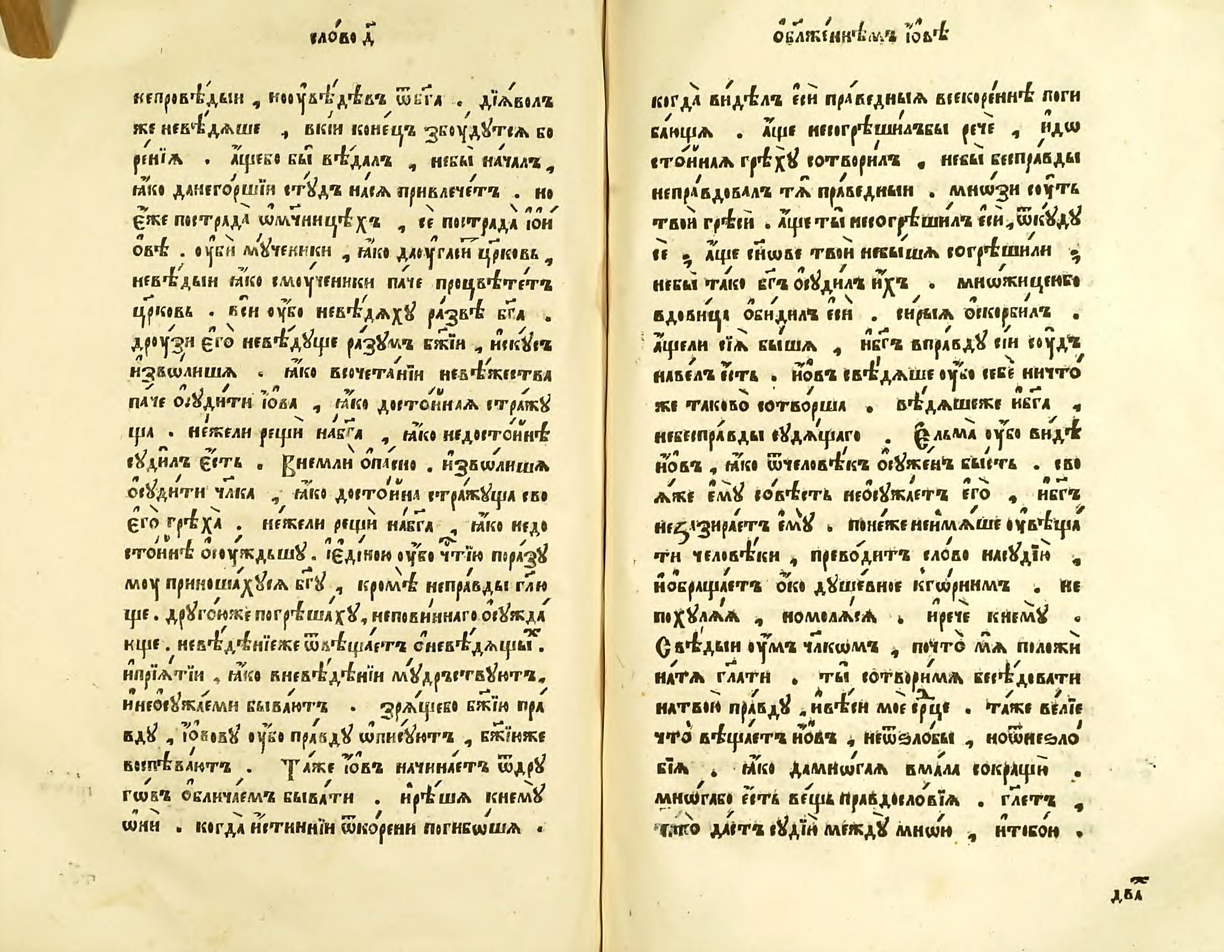 сло́во д҃
непровѣ́дыи , ноо̑увѣ́дѣвъ ѿбг҃а . дїѧ́волъ
же невѣ́дѧше , вкі́и коне́цъ збоу́дутсѧ бо
ре́нїѧ . а҆́щебо бы̀ вѣ́далъ , небы̀ нача́лъ ,
ꙗ҆́ко данего́ршїи сту́дъ насѧ̀ привлече́тъ . но
є҆́же пострада̀ ѡ҆мч҃ницѣхъ , се́ пострада̀ їо҆́и
о҆́вѣ . оу҆бѝ му́ченики , ꙗ҆́ко даоу҆гаси́тъ цр҃ковь ,
невѣ́дыи ꙗ҆́ко смоу́ченики па́че процвѣте́тъ
цр҃ковь . всѝ оу҆́бо невѣ́дѧху ра́звѣ бг҃а .
дроу́зи є҆го̀ невѣ́дуще ра́зумъ бж҃їи , и҆́скусъ
и҆зво́лишѧ . ꙗ҆́ко всочета́нїи невѣ́жества
па́че о҆суди́ти і҆́ова , ꙗ҆́ко досто́йнаѧ стра́жу
ща . не́жели рещѝ на́бг҃а , ꙗ҆́ко недосто́йнѣ
суди́лъ є҆́сть . Внемлѝ о҆па́сно . и҆зво́лишѧ
о҆суди́ти чл҃ка , ꙗ҆́ко досто́йна стра́жуща сво
є҆го̀ грѣха̀ . не́жели рещѝ на́бг҃а , ꙗ҆́ко недо
сто́йнѣ о҆соу́ждьшу . і҆є҆ди́ною оу҆́бо чⷭ҇тїю по ра́зу
моу приноша́хусѧ бг҃у , кромѣ̀ непра́вды гл҃ю
ще . друго́юже погрѣша́ху , непови́ннаго о҆сужда́
юще . невѣ́дѣнїеже ѿвѣща́етъ о҆невѣ́дѧщыⷯ .
и҆прїѧ́тїи , ꙗ҆́ко вневѣ́дѣнїи му́дръствуютъ ,
и҆нео҆сужда́еми быва́ютъ . зрѧ́щебо бж҃їю пра́
вду , і҆́овову оу҆́бо пра́вду ѡ҆пису́ютъ , бж҃їюже
воспѣва́ютъ . Та́же і҆́овъ начина́етъ ѿдру
го́въ о҆блича́емъ быва́ти . и҆рѣ́шѧ кнему̀
ѡ҆нѝ . когда̀ и҆́стиннїи ѿко́рени погибо́шѧ .
о҆бл҃же́ннѣмъ і҆́овѣ
когда̀ ви́дѣлъ є҆сѝ пра́ведныѧ вскоре́ннѣ поги
ба́ющѧ . а҆́ще несогрѣши́лъбы речѐ , и҆́дѡ
сто́йнаѧ грѣху̀ сотвори́лъ , небы̀ беспра́вды
непра́вдовалъ тѧ̀ пра́ведныи . мно́зи соу́ть
твоѝ грѣсѝ . а҆́ще ты̀ несогрѣши́лъ є҆сѝ , ѿку́ду
сѐ ; а҆́ще сн҃ове твоѝ небы́шѧ согрѣши́ли ;
небы̀ та́ко бг҃ъ о҆суди́лъ и҆́хъ . мно́жиценбо
вдови́ца о҆би́дилъ є҆сѝ . си́рыѧ о҆скорби́лъ .
а҆́щели сїѧ̀ бы́шѧ , и҆бг҃ъ впра́вду сі́и соу́дъ
наве́лъ є҆́сть . и҆́овъ свѣ́дѧше оу҆́бо себѐ ничто́
же таково̀ сотво́рша . вѣ́дѧшеже и҆бг҃а ,
небеспра́вды судѧ́щаго . Є҆льма̀ оу҆́бо ви́дѣ
и҆́овъ , ꙗ҆́ко ѿчеловѣ́къ о҆суже́нъ бы́сть . сво
ѧ́же є҆му̀ со́вѣсть нео҆сужа́етъ є҆го̀ , и҆бг҃ъ
незазира́етъ є҆му̀ . поне́же неимѧ́ше оу҆вѣща́
ти человѣ́ки , прево́дитъ сло́во насудїю̀ ,
и҆о҆браща́етъ о҆́ко душе́вное кго́рнимъ . не
поху́лѧѧ , номолѧ́сѧ . и҆речѐ кнему̀ .
Свѣ́дыи оу҆́мъ чл҃комъ , почто̀ мѧ̀ положѝ
натѧ̀ гл҃ати . ты̀ сотвори́мѧ бесѣ́довати
натвою̀ пра́вду , и҆вѣ́си моѐ срⷣце . та́же ве́лїе
что̀ вѣща́етъ и҆́овъ , неѿзло́бы , ноѿнезло́
бїѧ . ꙗ҆́ко дамно́гаѧ вма́ла сокращѝ .
мно́габо є҆́сть ве́щь правдосло́вїѧ . гл҃етъ ,
та́ко да́стъ судїѝ между̀ мно́ю , и҆тобо́ю .
двⷤа